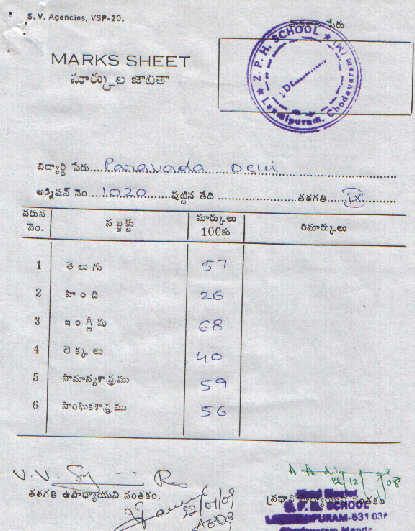 S.V. Agencies, VSP-20.
MARKS SHEET
మార్కుల జాబితా
★ Z. P. H. SCHOOL ★
Laxmipuram, Chodavaram
విద్యార్థి పేరు Panavada Devi
అడ్మిషన్ నెం. 1020 పుట్టిన తేది తరగతి IX
వరుస నెం. సబ్జెక్ట్ మార్కులు 100కు రిమార్కులు
1 తెలుగు 57
2 హింది 26
3 ఇంగ్లీషు 68
4 లెక్కలు 40
5 సామాన్యశాస్త్రము 59
6 సాంఘికశాస్త్రము 56
V. V. R
తరగతి ఉపాధ్యాయుని సంతకం.
Head Master
Z.P.H. SCHOOL